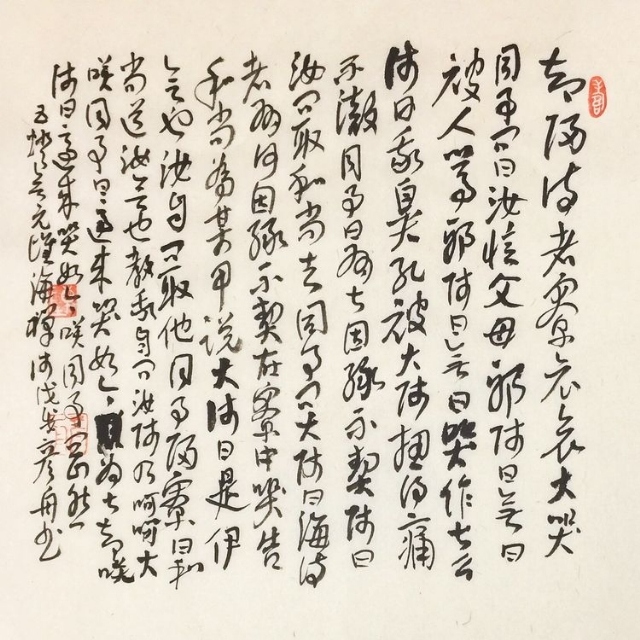 却歸侍者寮哀哀大哭
同事問曰汝憶父母邪師曰無曰
被人罵邪師曰無曰哭作甚么
師曰我鼻孔被大師搊得痛
不澈同事曰有甚因緣不契師曰
汝問取和尚去同事問大師曰海侍
者有何因緣不契在寮中哭告
和尚為某甲說大師曰是伊
會也汝自問取他同事歸寮曰和
尚道汝會也教我自問汝師乃呵呵大
笑同事曰適來哭如今為甚却笑
師曰適來哭如今笑同事罔然
五燈會元懷海禪師戊戌彥舟書